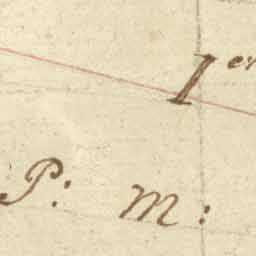 1er
P: m: